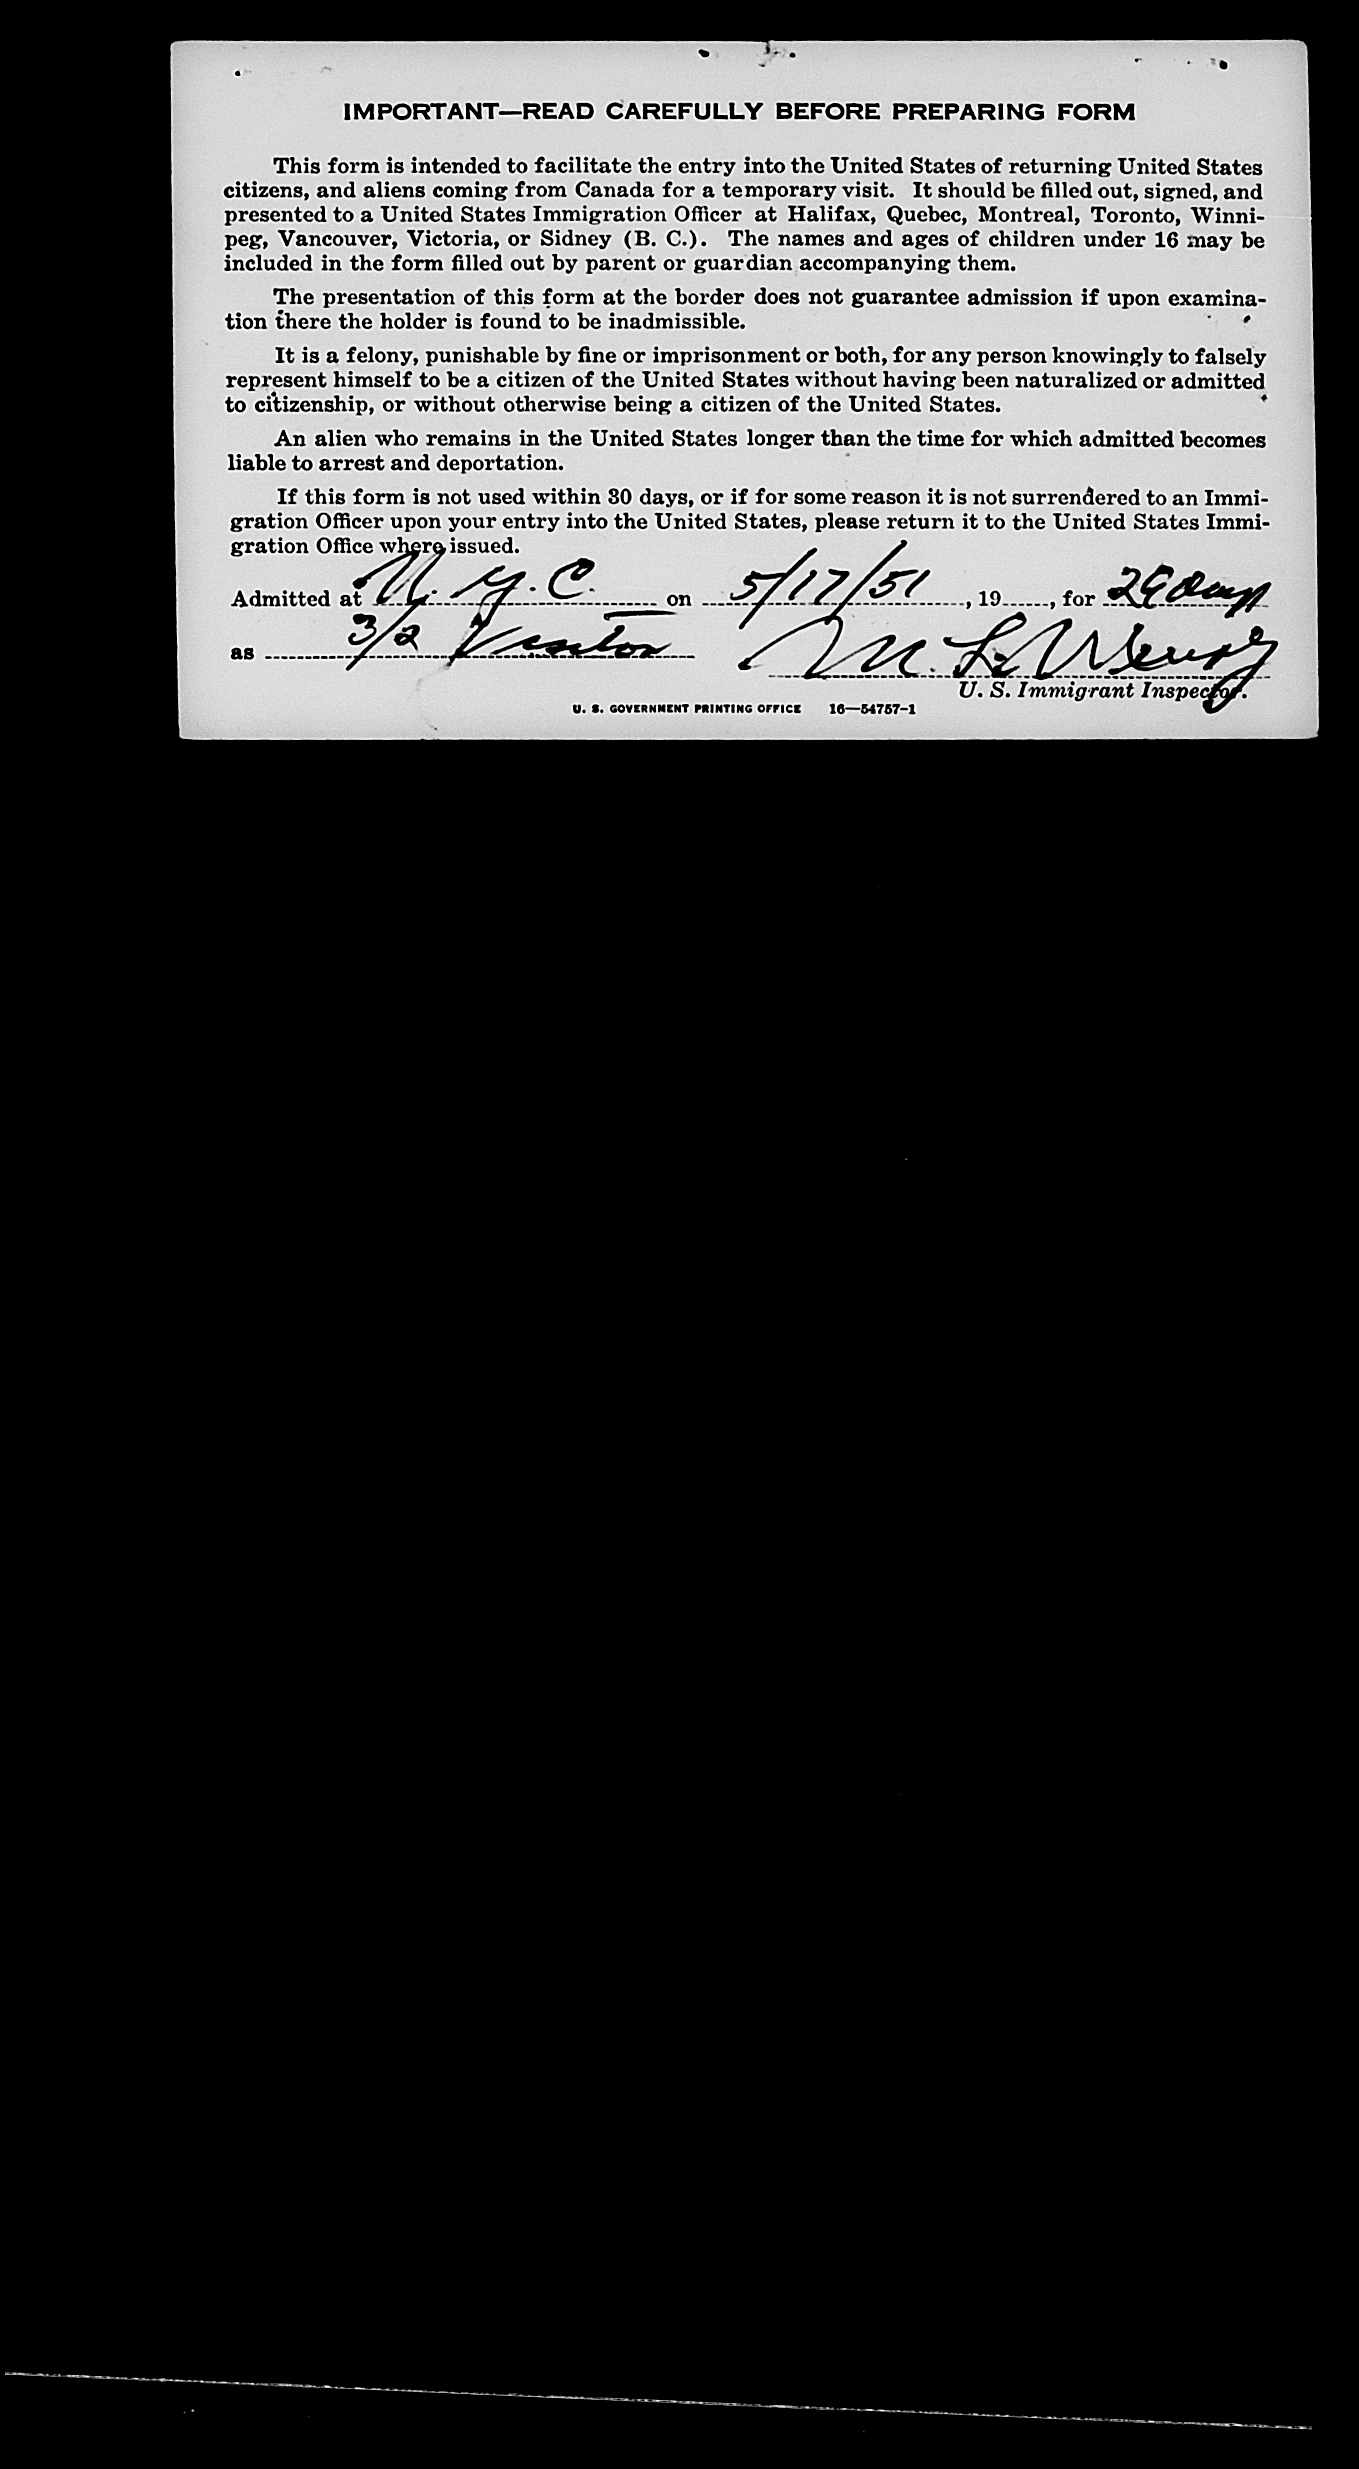 IMPORTANT—READ CAREFULLY BEFORE PREPARING FORM
This form is intended to facilitate the entry into the United States of returning United States
citizens, and aliens coming from Canada for a temporary visit. It should be filled out, signed, and
presented to a United States Immigration Officer at Halifax, Quebec, Montreal, Toronto, Winni-
peg, Vancouver, Victoria, or Sidney (B. C.). The names and ages of children under 16 may be
included in the form filled out by parent or guardian accompanying them.
The presentation of this form at the border does not guarantee admission if upon examina-
tion there the holder is found to be inadmissible.
It is a felony, punishable by fine or imprisonment or both, for any person knowingly to falsely
represent himself to be a citizen of the United States without having been naturalized or admitted
to citizenship, or without otherwise being a citizen of the United States.
An alien who remains in the United States longer than the time for which admitted becomes
liable to arrest and deportation.
If this form is not used within 30 days, or if for some reason it is not surrendered to an Immi-
gration Officer upon your entry into the United States, please return it to the United States Immi-
gration Office where issued.
Admitted at N. Y. C. on 5/17/51, 19, for 29 days
as 3/2 Visitor M. L.
U. S. Immigrant Inspector.
U. S. GOVERNMENT PRINTING OFFICE 16—54757-1